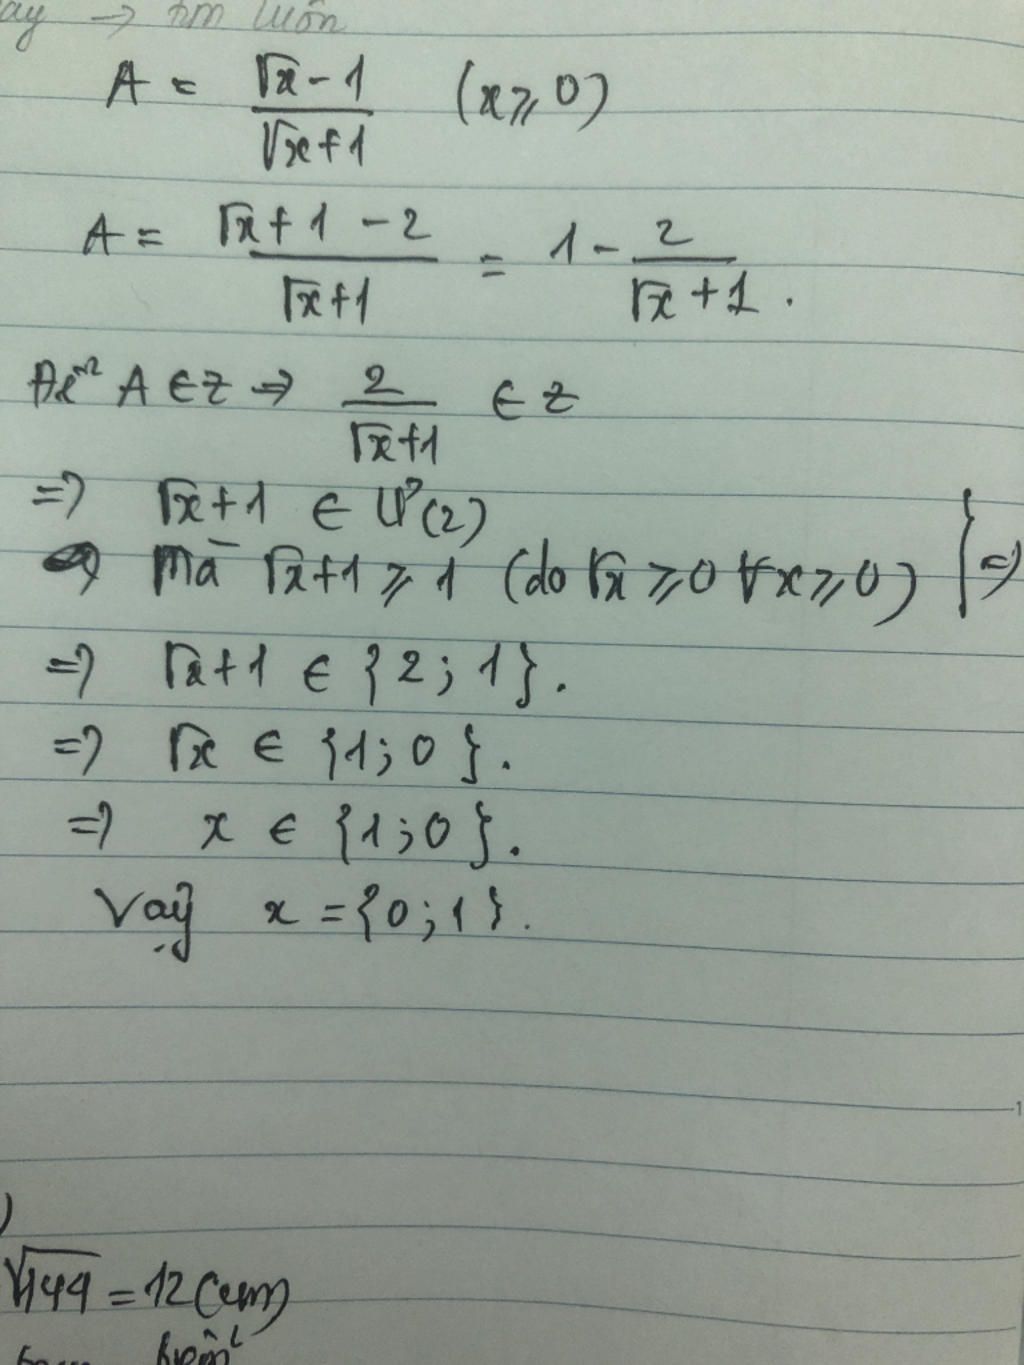 → tìm luôn
A = (√x - 1)/(√x + 1) (x ⩾ 0)
A = (√x + 1 - 2)/(√x + 1) = 1 - 2/(√x + 1).
Để A ∈ Z ⇒ 2/(√x + 1) ∈ Z
⇒ √x + 1 ∈ Ư(2)
Mà √x + 1 ⩾ 1 (do √x ⩾ 0 ∀x ⩾ 0) } ⇒
⇒ √x + 1 ∈ {2; 1}.
⇒ √x ∈ {1; 0}.
⇒ x ∈ {1; 0}.
Vậy x = {0; 1}.
1
)
√144 = 12 (cm)